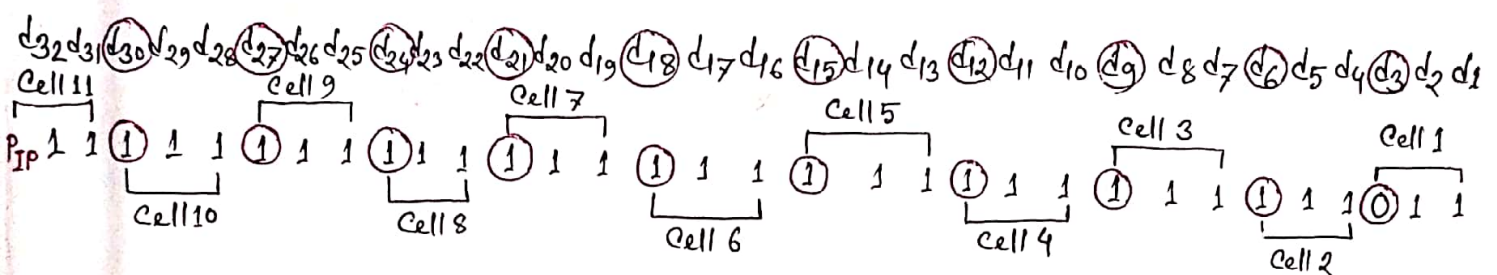 d32 d31 d30 d29 d28 d27 d26 d25 d24 d23 d22 d21 d20 d19 d18 d17 d16 d15 d14 d13 d12 d11 d10 d9 d8 d7 d6 d5 d4 d3 d2 d1
Cell 11 Cell 9 Cell 7 Cell 5 Cell 3 Cell 1
PIP 1 1 1 1 1 1 1 1 1 1 1 1 1 1 1 1 1 1 1 1 1 1 1 1 1 1 1 1 1 0 1 1
Cell 10 Cell 8 Cell 6 Cell 4 Cell 2